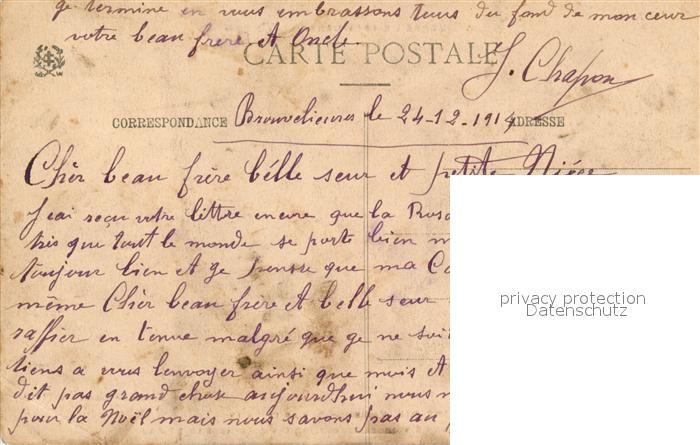 ge termine en vous embrassons tous du fond de mon ceur
votre beau frère et Oncle
CARTE POSTALE
J. Chapon
CORRESPONDANCE
Brouvelieures le 24-12-1914
ADRESSE
Chèr beau frère bélle seur et petite Nièce
J'ai reçu votre lettre encore que la
tris que tout le monde se porte bien
toujour bien et ge pensse que ma
même Chèr beau frère et belle seur
en tenue malgré que ge ne soit
tiens a vous l'envoyer ainsi que mois et
dit pas grand chose aujourdhui nous
pour la Noël mais nous savons pas au
privacy protection
Datenschutz